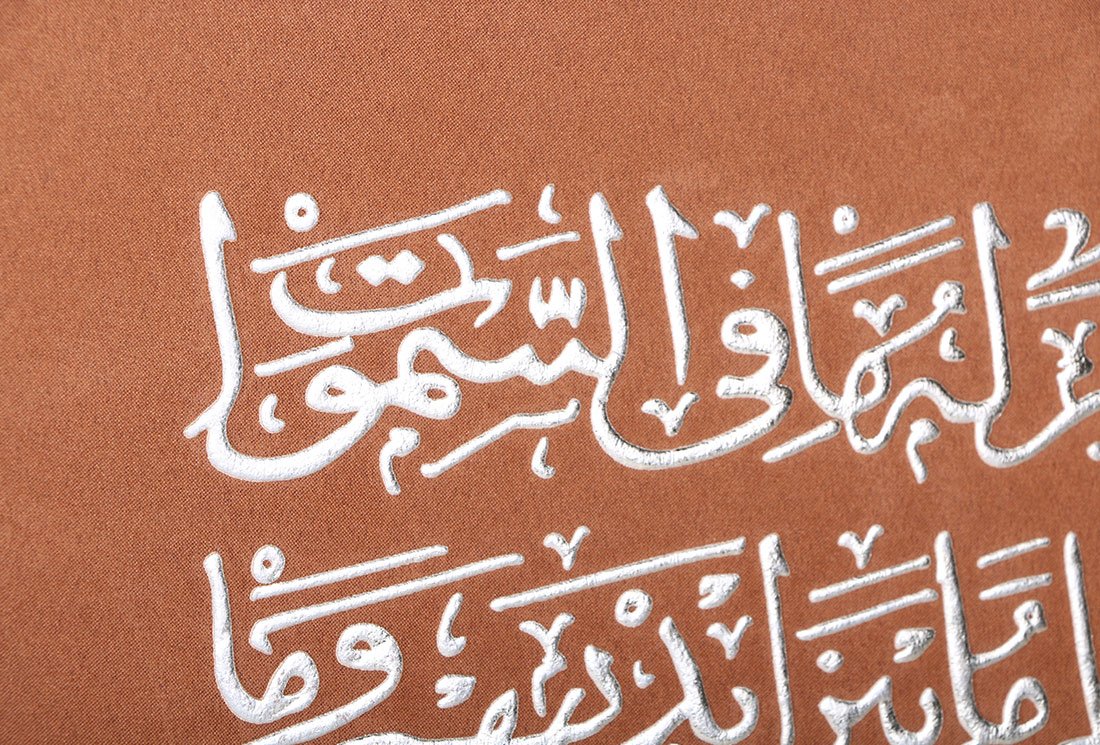 لَهُ مَا فِي السَّمَوَاتِ
مَا بَيْنَ أَيْدِيهِمْ وَمَا